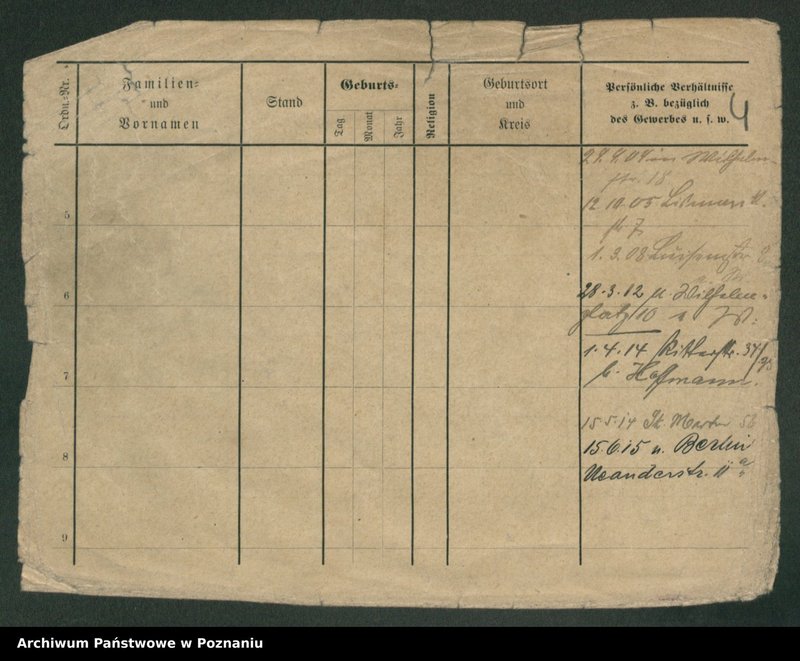 Ordn.-Nr.
Familien-
und
Vornamen
Stand
Geburts-
Tag
Monat
Jahr
Religion
Geburtsort
und
Kreis
Persönliche Verhältnisse
z. B. bezüglich
des Gewerbes u. s. w.
4
24.9.04 in Wilhelm-
str. 18
5
12.10.05
7
1.3.08 Luisenstr
6
28.3.12 n. Wilhelm-
platz 10
1.4.14 Ritterstr. 37/39
7
b. Hoffmann.
15.5.14 St. Martin
8
15.6.15 n. Berlin
Neanderstr. 11
9
Archiwum Państwowe w Poznaniu